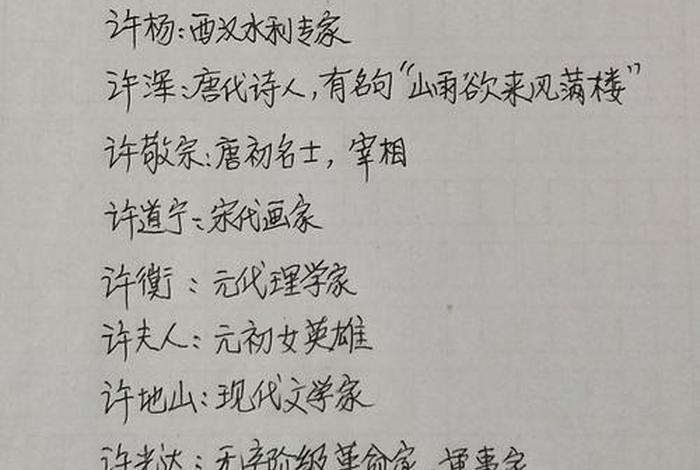 许杨:西汉水利专家
许浑:唐代诗人,有名句“山雨欲来风满楼”
许敬宗:唐初名士,宰相
许道宁:宋代画家
许衡:元代理学家
许夫人:元初女英雄
许地山:现代文学家
许光达:无产阶级革命家 军事家